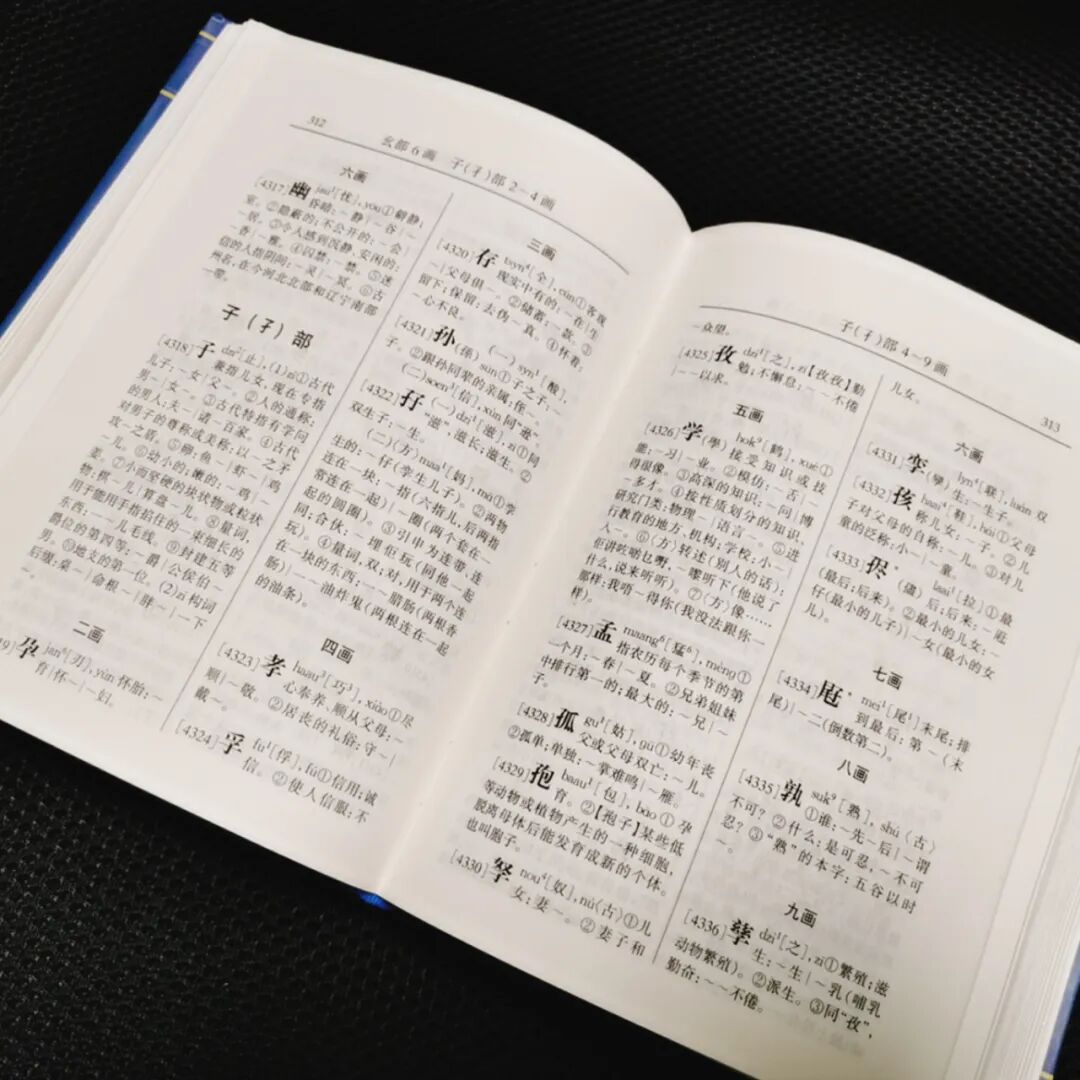 312
玄部6画 子(孑)部2－4画
六画
[4317] 幽 jau¹[忧], yōu①僻静;
昏暗:～静|～谷|～
室。②隐蔽的;不公开的:～会|～
居。③令人感到沉静、安闲的:
～香|～雅。④囚禁:～禁。⑤迷
信的人指阴间:～灵|～冥。⑥古
州名,在今河北北部和辽宁南部
一带。
子(孑)部
[4318] 子 dzi²[止], (1)zǐ①古代
兼指儿女,现在专指
儿子:～女|父～。②人的通称:
男～|女～。③古代特指有学问
的男人:夫～|诸～百家。④古代
对男子的尊称或美称:以～之矛
攻～之盾。⑤卵:鱼～|虾～|鸡
～儿。⑥幼小的;嫩的:～鸡|～
姜。⑦小而坚硬的块状物或粒状
物:棋～儿|算盘～儿。⑧量词,
用于能用手指掐住的一束细长的
东西:一～儿毛线。⑨封建五等
爵位的第四等:～爵|公侯伯～
男。⑩地支的第一位。(2)zi 构词
后缀:桌～|命根～|胖～|一下
～。
二画
孕 jan⁶[刃], yùn 怀胎:～
育|怀～|～妇。
三画
[4320] 存 tsyn⁴[全], cún①客观
现实中有的:～在|生
～|父母俱～。②储蓄:～款。③
留下;保留:去伪～真。④怀着:
～心不良。
[4321] 孙(孫) (一)syn¹[酸],
sūn①子之子:～
子。②跟孙同辈的亲属:侄～。
(二)soen³[信], xùn 同“逊”。
[4322] 孖 (一)dzi¹[滋], zī①同
“滋”,滋长;滋生。②
双生子:～生。
(二)〈方〉maa¹[妈], mā①孪
生的:～仔(孪生儿子)。②两物
连在一块:～指(六指儿,后两指
常连在一起)|～圈(两个套在一
起的圆圈)。③引申为连带,连
同;合伙:～埋佢玩(同他一起
玩)。④量词,双;对,用于两个连
在一块的东西:一～腊肠(两根香
肠)|一～油炸鬼(两根连在一起
的油条)。
四画
[4323] 孝 haau³[巧³], xiào①尽
心奉养、顺从父母:～
顺|～敬。②居丧的礼俗:守～|
戴～。
[4324] 孚 fu¹[俘], fú①信用;诚
信。②使人信服:不
子(孑)部4～9画
313
～众望。
[4325] 孜 dzi¹[之], zī【孜孜】勤
勉;不懈怠:～～不倦
|～～以求。
五画
[4326] 学(學) hok⁹[鹤], xué①
接受知识或技
能:～习|～业。②模仿:～舌|～
得很像。③高深的知识:～问|博
～多才。④按性质划分的知识
研究门类:物理～|语言～。⑤进
行教育的地方、机构;学校:小～|
入～。⑥〈方〉转述(别人的话):
佢讲咗啲乜嘢,～嚟听下(他说了
什么,说来听听)。⑦〈方〉像……
那样:我唔～得你(我没法跟你一
样)。
[4327] 孟 maang⁶[猛⁶], mèng①
指农历每个季节的第
一个月:～春|～夏。②兄弟姐妹
中排行第一的;最大的:～兄|～
子。
[4328] 孤 gu¹[姑], gū①幼年丧
父或父母双亡:～儿。
②孤单;单独:～掌难鸣|～雁。
[4329] 孢 baau¹[包], bāo①孕
育。②【孢子】某些低
等动物或植物产生的一种细胞,
脱离母体后能发育成新的个体。
也叫胞子。
[4330] 孥 nou⁴[奴], nú〈古〉①儿
女:妻～。②妻子和
儿女。
六画
[4331] 孪(孿) lyn⁴[联], luán 双
生:～生子。
[4332] 孩 haai⁴[鞋], hái①父母
称儿女:～子。②父母
子对父母的自称:～儿。③对儿
童的泛称:小～|～童。
laai¹[拉]①最
(最后;后来)。②最小的儿女:～
仔(最小的儿子)|～女(最小的女
儿)。
七画
[4334] mei¹[尾¹]末尾;排
到最后:第～(末
尾)|～二(倒数第二)。
八画
[4335] 孰 suk⁹[熟], shú〈古〉
①谁:～先～后|～谓
不可?②什么:是可忍,～不可
忍?③“熟”的本字:五谷以时
～。
九画
[4336] 孳 dzi¹[之], zī①繁殖;滋
生:～生|～乳(哺乳
动物繁殖)。②派生。③同“孜”,
勤奋:～～不倦。